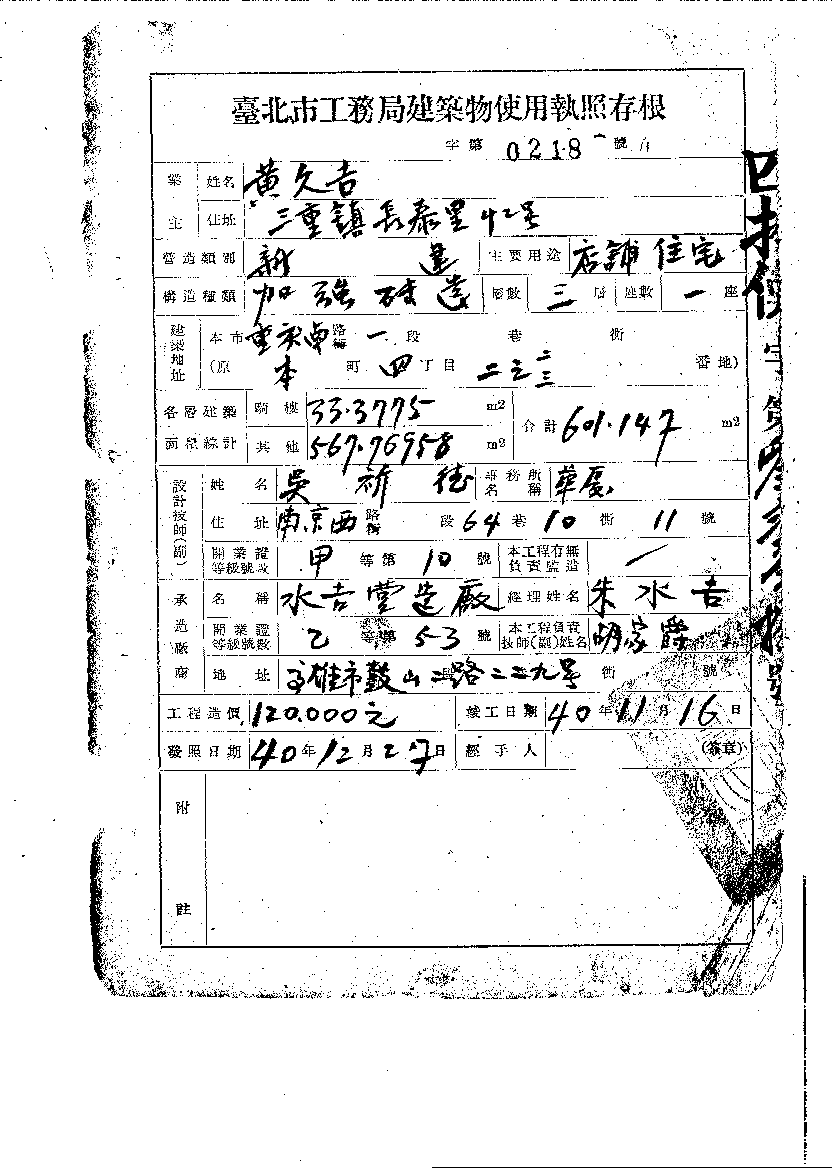 臺北市工務局建築物使用執照存根
字第 0218 號
業主 姓名 黃久吉
住址 三重鎮長泰里42号
營造類別 新建 主要用途 店舖住宅
構造種類 加強磚造 層數 三層 座數 一座
建築地址 本市重慶南路街一段 巷 衖
(原 本町四丁目 二之二 三 番地)
各層建築面積總計 騎樓 33.3775 m2 合計 601.147 m2
其他 567.76958 m2
設計技師(副) 姓名 吳 德 事務所名稱 華廈
住址 南京西路街 段 64 巷 10 衖 11 號
開業證等級號數 甲等第 10 號 本工程有無負責監造 /
承造廠商 名稱 水吉營造廠 經理姓名 朱水吉
開業證等級號數 乙等第 53 號 本工程負責技師(副)姓名 胡家爵
地址 高雄市鼓山二路二三九号 衖 號
工程造價 120.000元 竣工日期 40年11月16日
發照日期 40年12月27日 經手人 (簽章)
附註